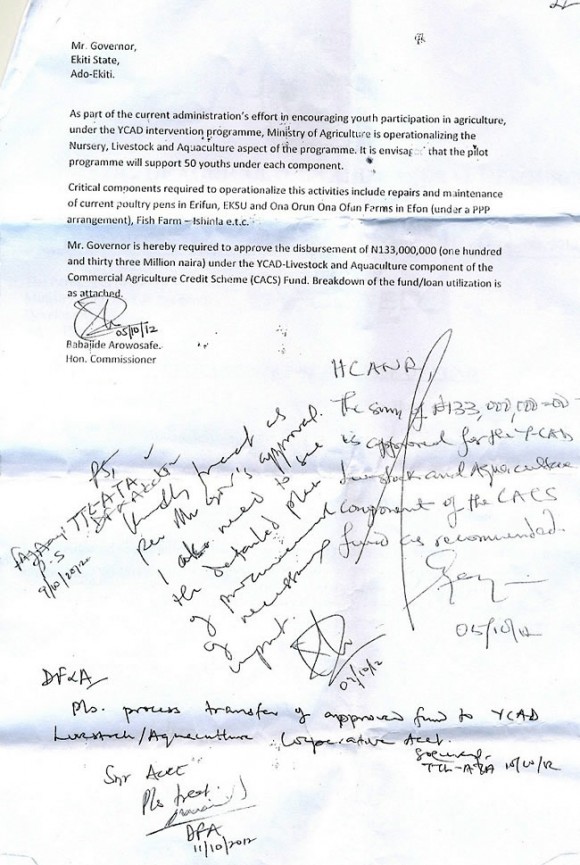 Mr. Governor,
Ekiti State,
Ado-Ekiti.
As part of the current administration's effort in encouraging youth participation in agriculture,
under the YCAD intervention programme, Ministry of Agriculture is operationalizing the
Nursery, Livestock and Aquaculture aspect of the programme. It is envisag that the pilot
programme will support 50 youths under each component.
Critical components required to operationalize this activities include repairs and maintenance
of current poultry pens in Erifun, EKSU and Ona Orun Ona Ofun Farms in Efon (under a PPP
arrangement), Fish Farm – Ishinla e.t.c.
Mr. Governor is hereby required to approve the disbursement of N133,000,000 (one hundred
and thirty three Million naira) under the YCAD-Livestock and Aquaculture component of the
Commercial Agriculture Credit Scheme (CACS) Fund. Breakdown of the fund/loan utilization is
as attached.
05/10/12
Babajide Arowosafe.
Hon. Commissioner
HCANR,
The sum of ₦133,000,000=00
is approved for the YCAD
Livestock and Aquaculture
component of the CACS
fund as recommended.
05/10/12
PS,
Kindly treat as
per Mr Gov's approval.
I also need to see
the detailed plan
of procurement
of necessary
input.
07/10/12
TTL-ATA
P.S
9/10/2012
DF&A
Pls. process transfer of approved fund to YCAD
Livestock/Aquaculture Cooperative Acct.
TTL-ATA 10/10/12
Snr Acct
Pls treat.
DFA
11/10/2012